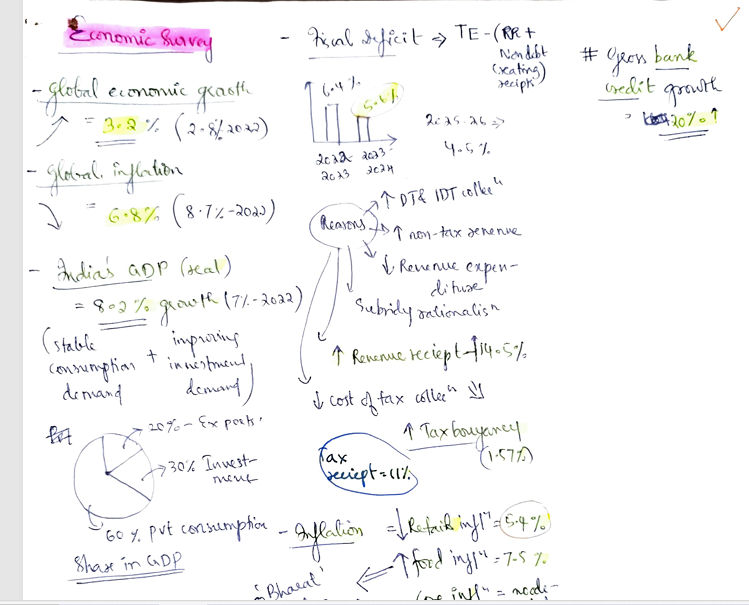 Economic Survey
- Global economic growth
= 3.2% (2.8% 2022)
- Global inflation
= 6.8% (8.7% - 2022)
- India's GDP (real)
= 8.2% growth (7% - 2022)
(stable consumption demand + improving investment demand)
20% - Exports
30% Invest-
ment
60% pvt consumption
Share in GDP
- Fiscal deficit ⇒ TE - (RR +
Non debt
creating)
recipt
6.4%
5.6%
2022
2023
2023
2024
2025-26 ⇒
4.5%
Reasons
↑ DT & IDT collecⁿ
↑ non-tax revenue
↓ Revenue expen-
diture
Subsidy rationalisⁿ
↑ Revenue reciept - ↑14.5%
↓ cost of tax collecⁿ
↑ Tax bouyancy
(1.57%)
Tax
reciept = 11%
- Inflation = ↓ Retail inflⁿ = 5.4%
↑ food inflⁿ = 7.5%
'Bharat'
inflⁿ =
# Gross bank
credit growth
= 20% ↑